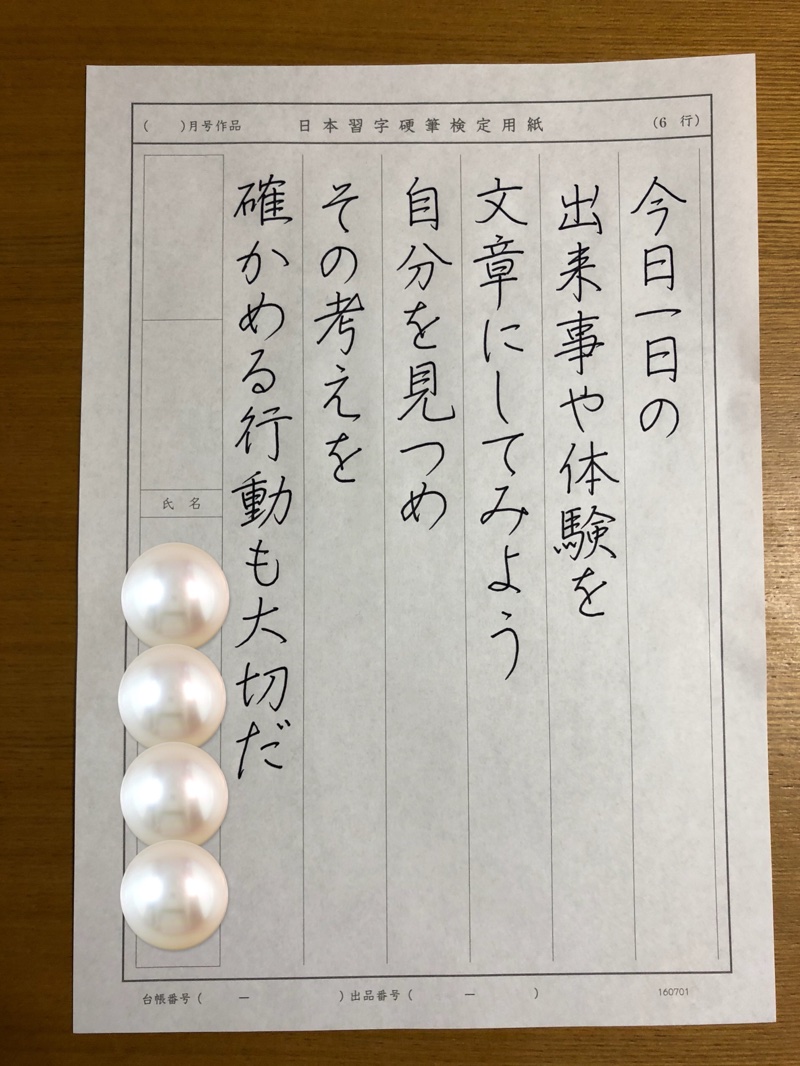 (　　)月号作品　日本習字硬筆検定用紙　(6 行)
今日一日の
出来事や体験を
文章にしてみよう
自分を見つめ
その考えを
確かめる行動も大切だ
氏 名
台帳番号(　ー　)出品番号(　ー　)　160701